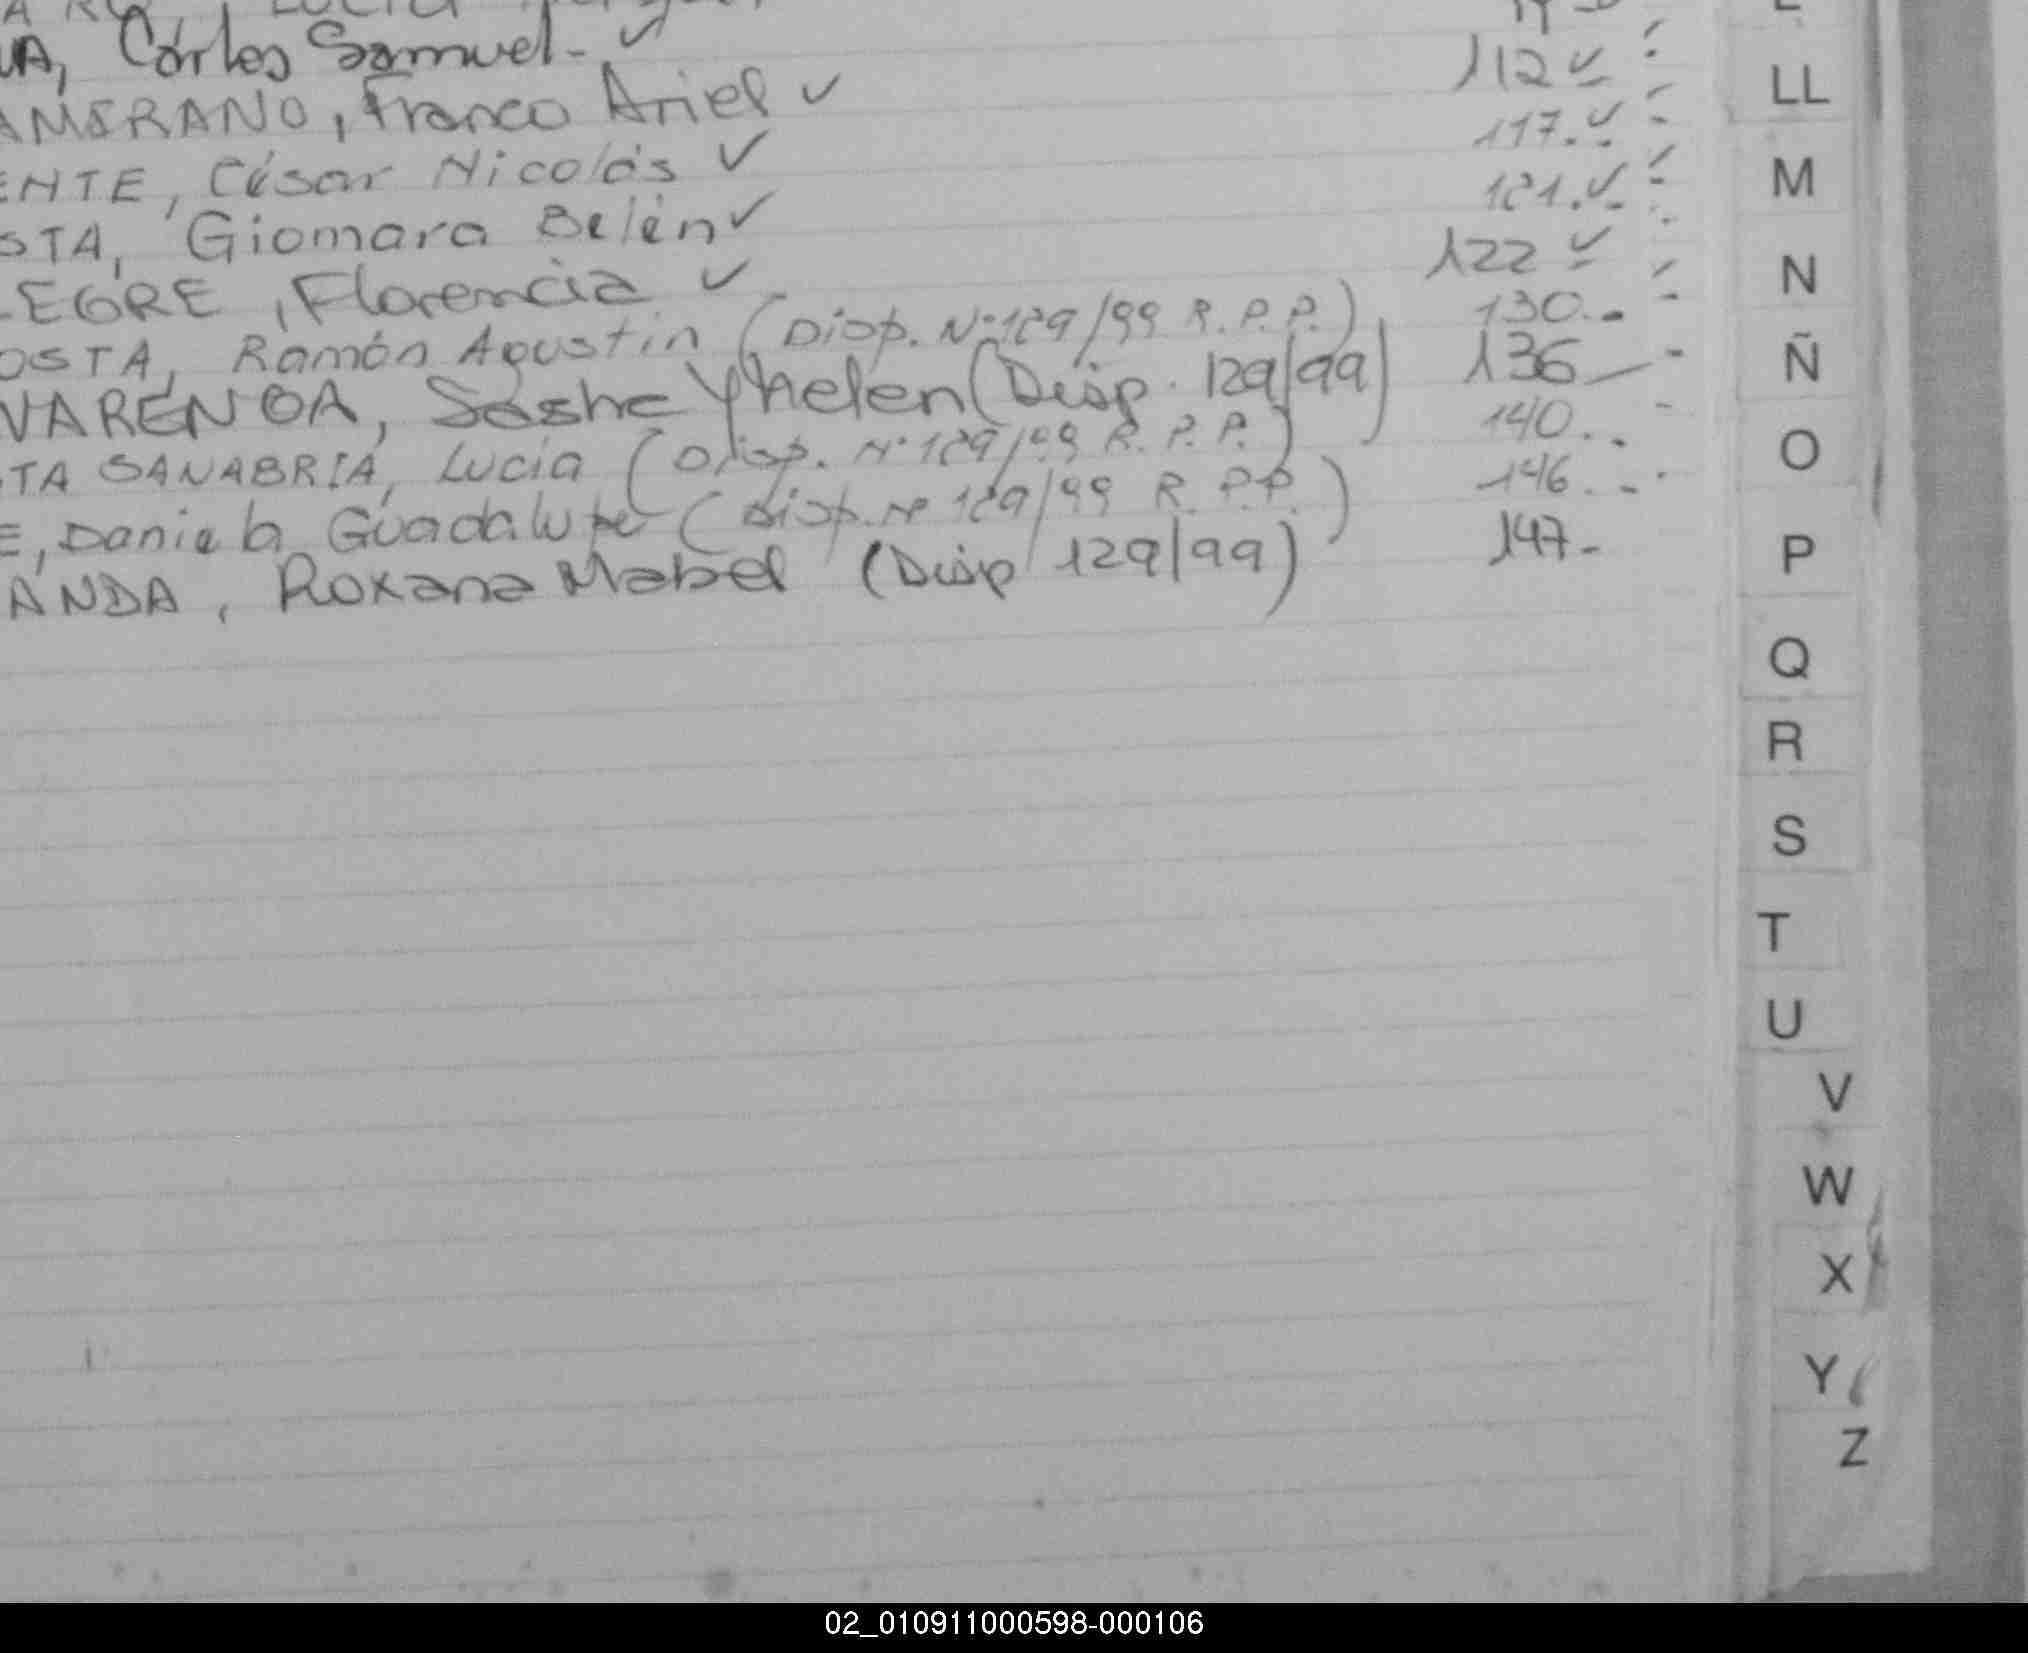 UA, Carlos Samuel - ✓
AMERANO, Franco Ariel ✓ 112 ✓
ENTE, César Nicolás ✓ 117. ✓
STA, Giomara Belén ✓ 121. ✓
LEGRE, Florencia ✓ 122 ✓
OSTA, Ramón Agustín (Disp. Nº 129/99 R.P.P.) 130.-
VARENGA, Sashe Yhelen (Disp. 129/99) 136 -
STA SANABRIA, Lucía (Disp. Nº 129/99 R.P.P.) 140.-
E, Daniela Guadalupe (Disp. Nº 129/99 R.P.P.) 146.-
ANDA, Roxana Mabel (Disp 129/99) 147-
LL
M
N
Ñ
O
P
Q
R
S
T
U
V
W
X
Y
Z
02_010911000598-000106